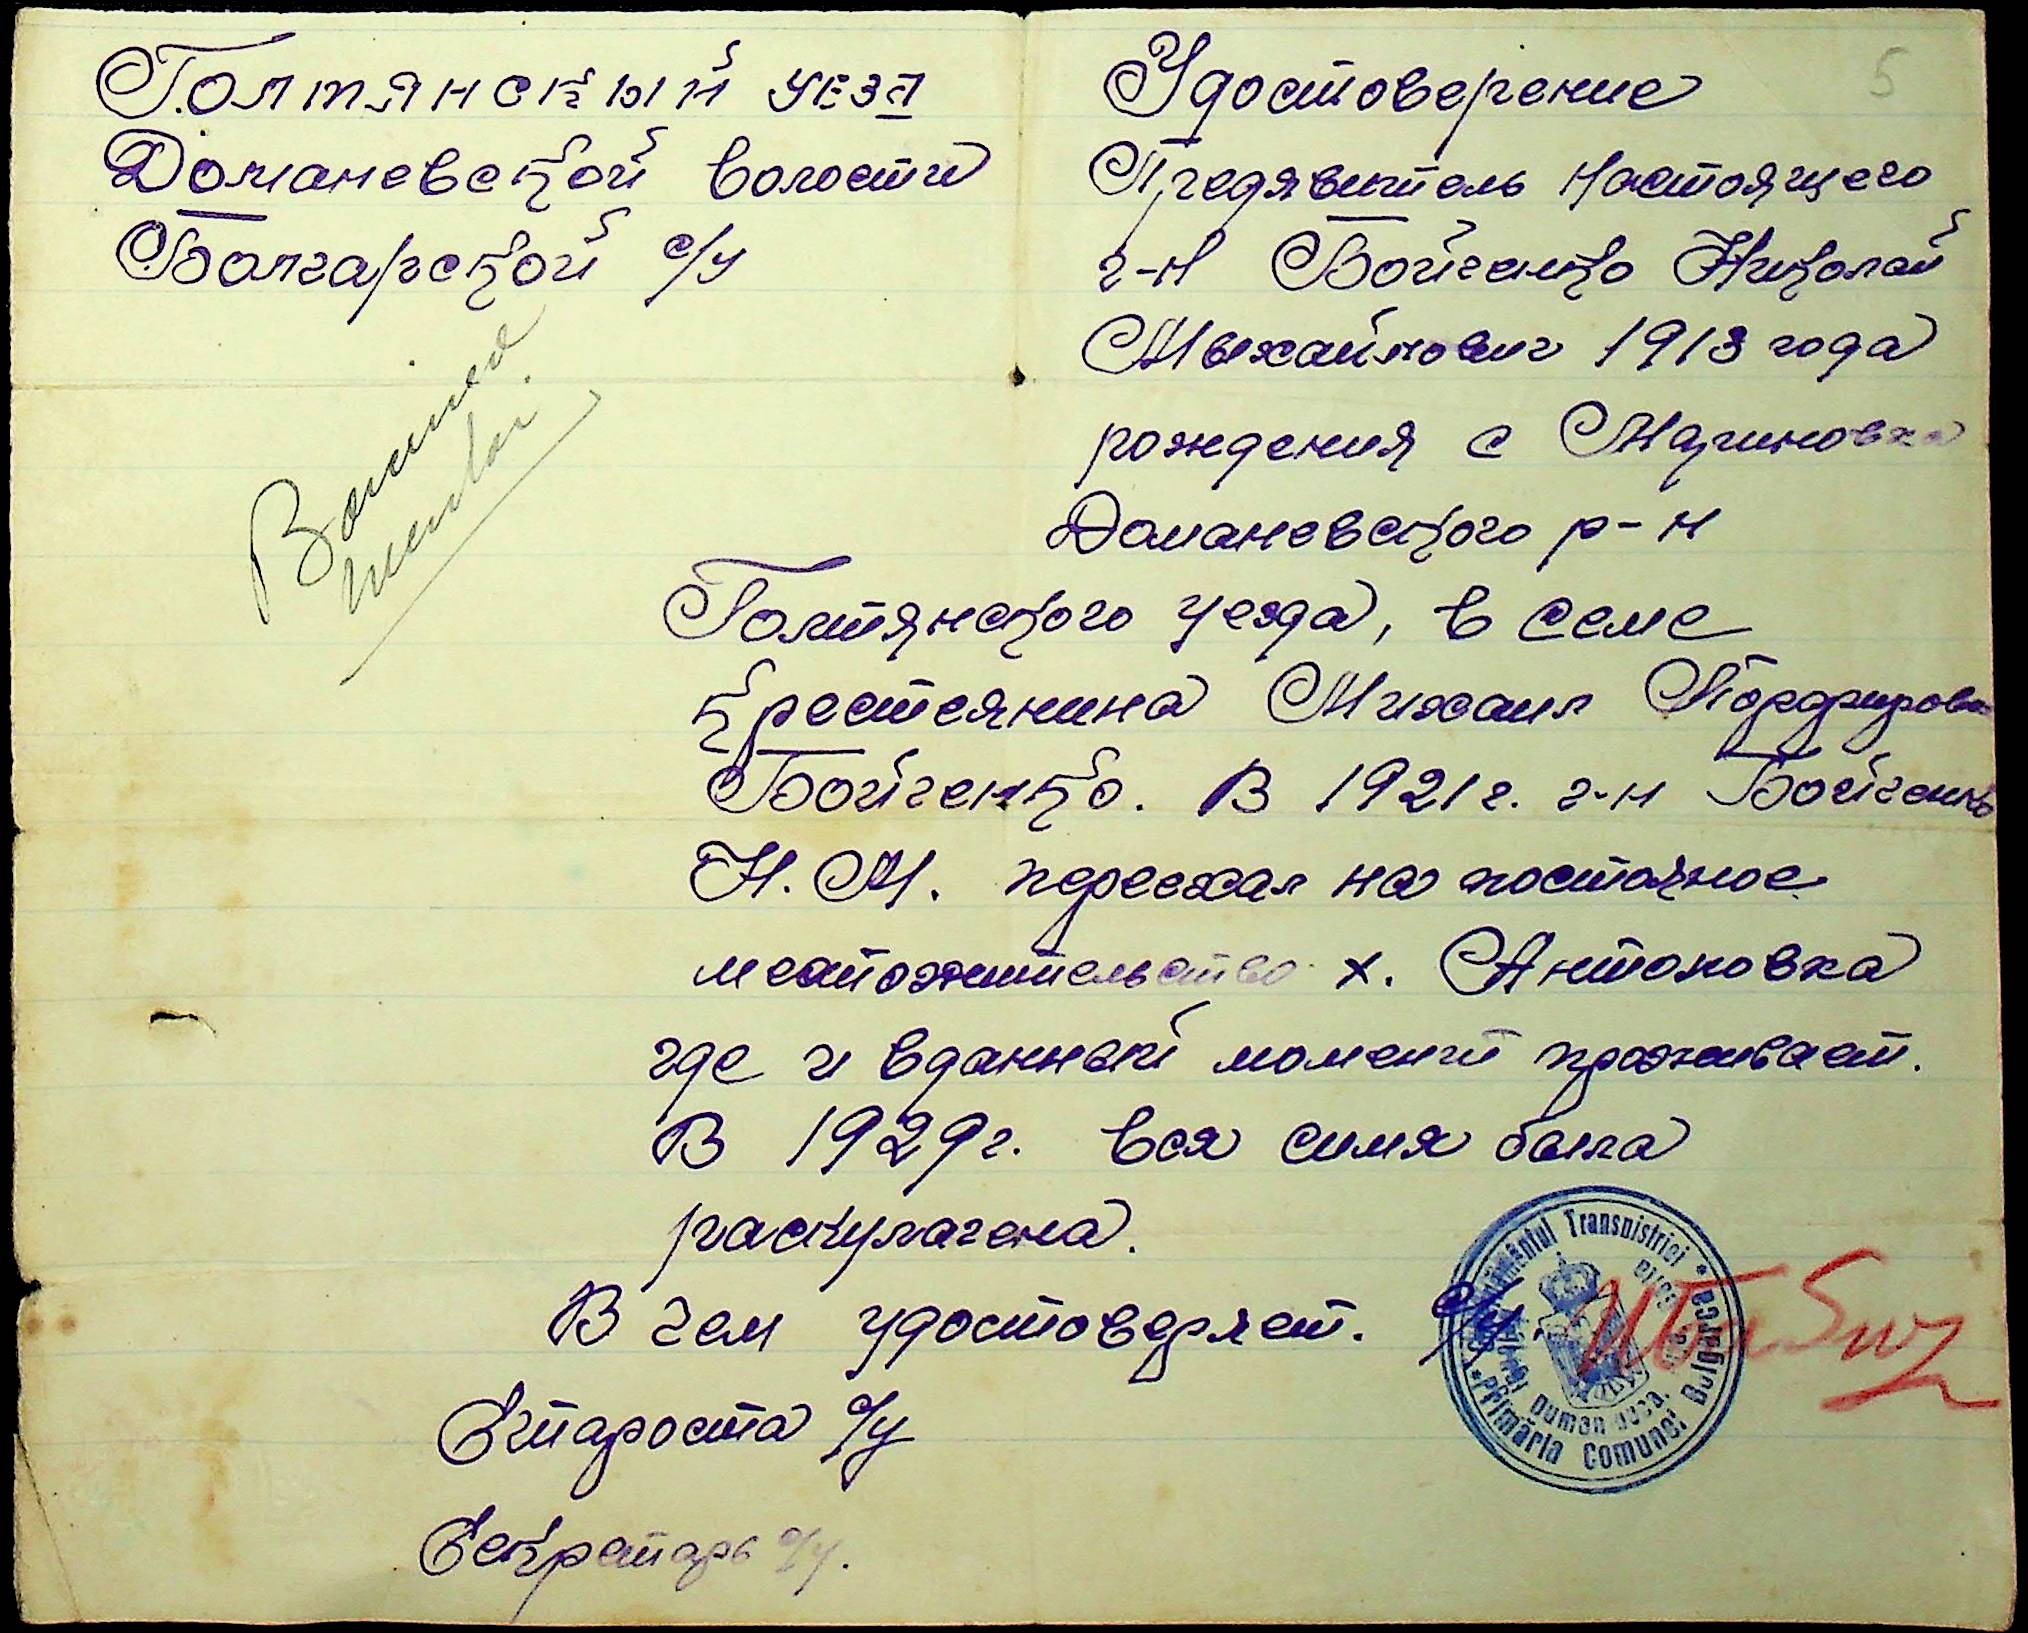 Голтянский уезд
Доманевской волости
Болгарской с/у
5
Удостоверение
Предявитель настоящего
г-н Бойченко Николай
Мыхайлович 1913 года
рождения с Мариновка
Доманевского р-н
Голтянского уезда, в семе
крестеянина Михаил Порфирови
Бойченко. В 1921 г. г-н Бойченко
Н. М. переехал на постояное
местожительство х. Антоновка
где и вданный момент проживает.
В 1929 г. вся симя была
раскулачена.
В чем удостоверяет. с/у.
Стпароста с/у
Секретарь с/у.
Guvernământul Transnistriei
Primăria Comunei Bolgarca